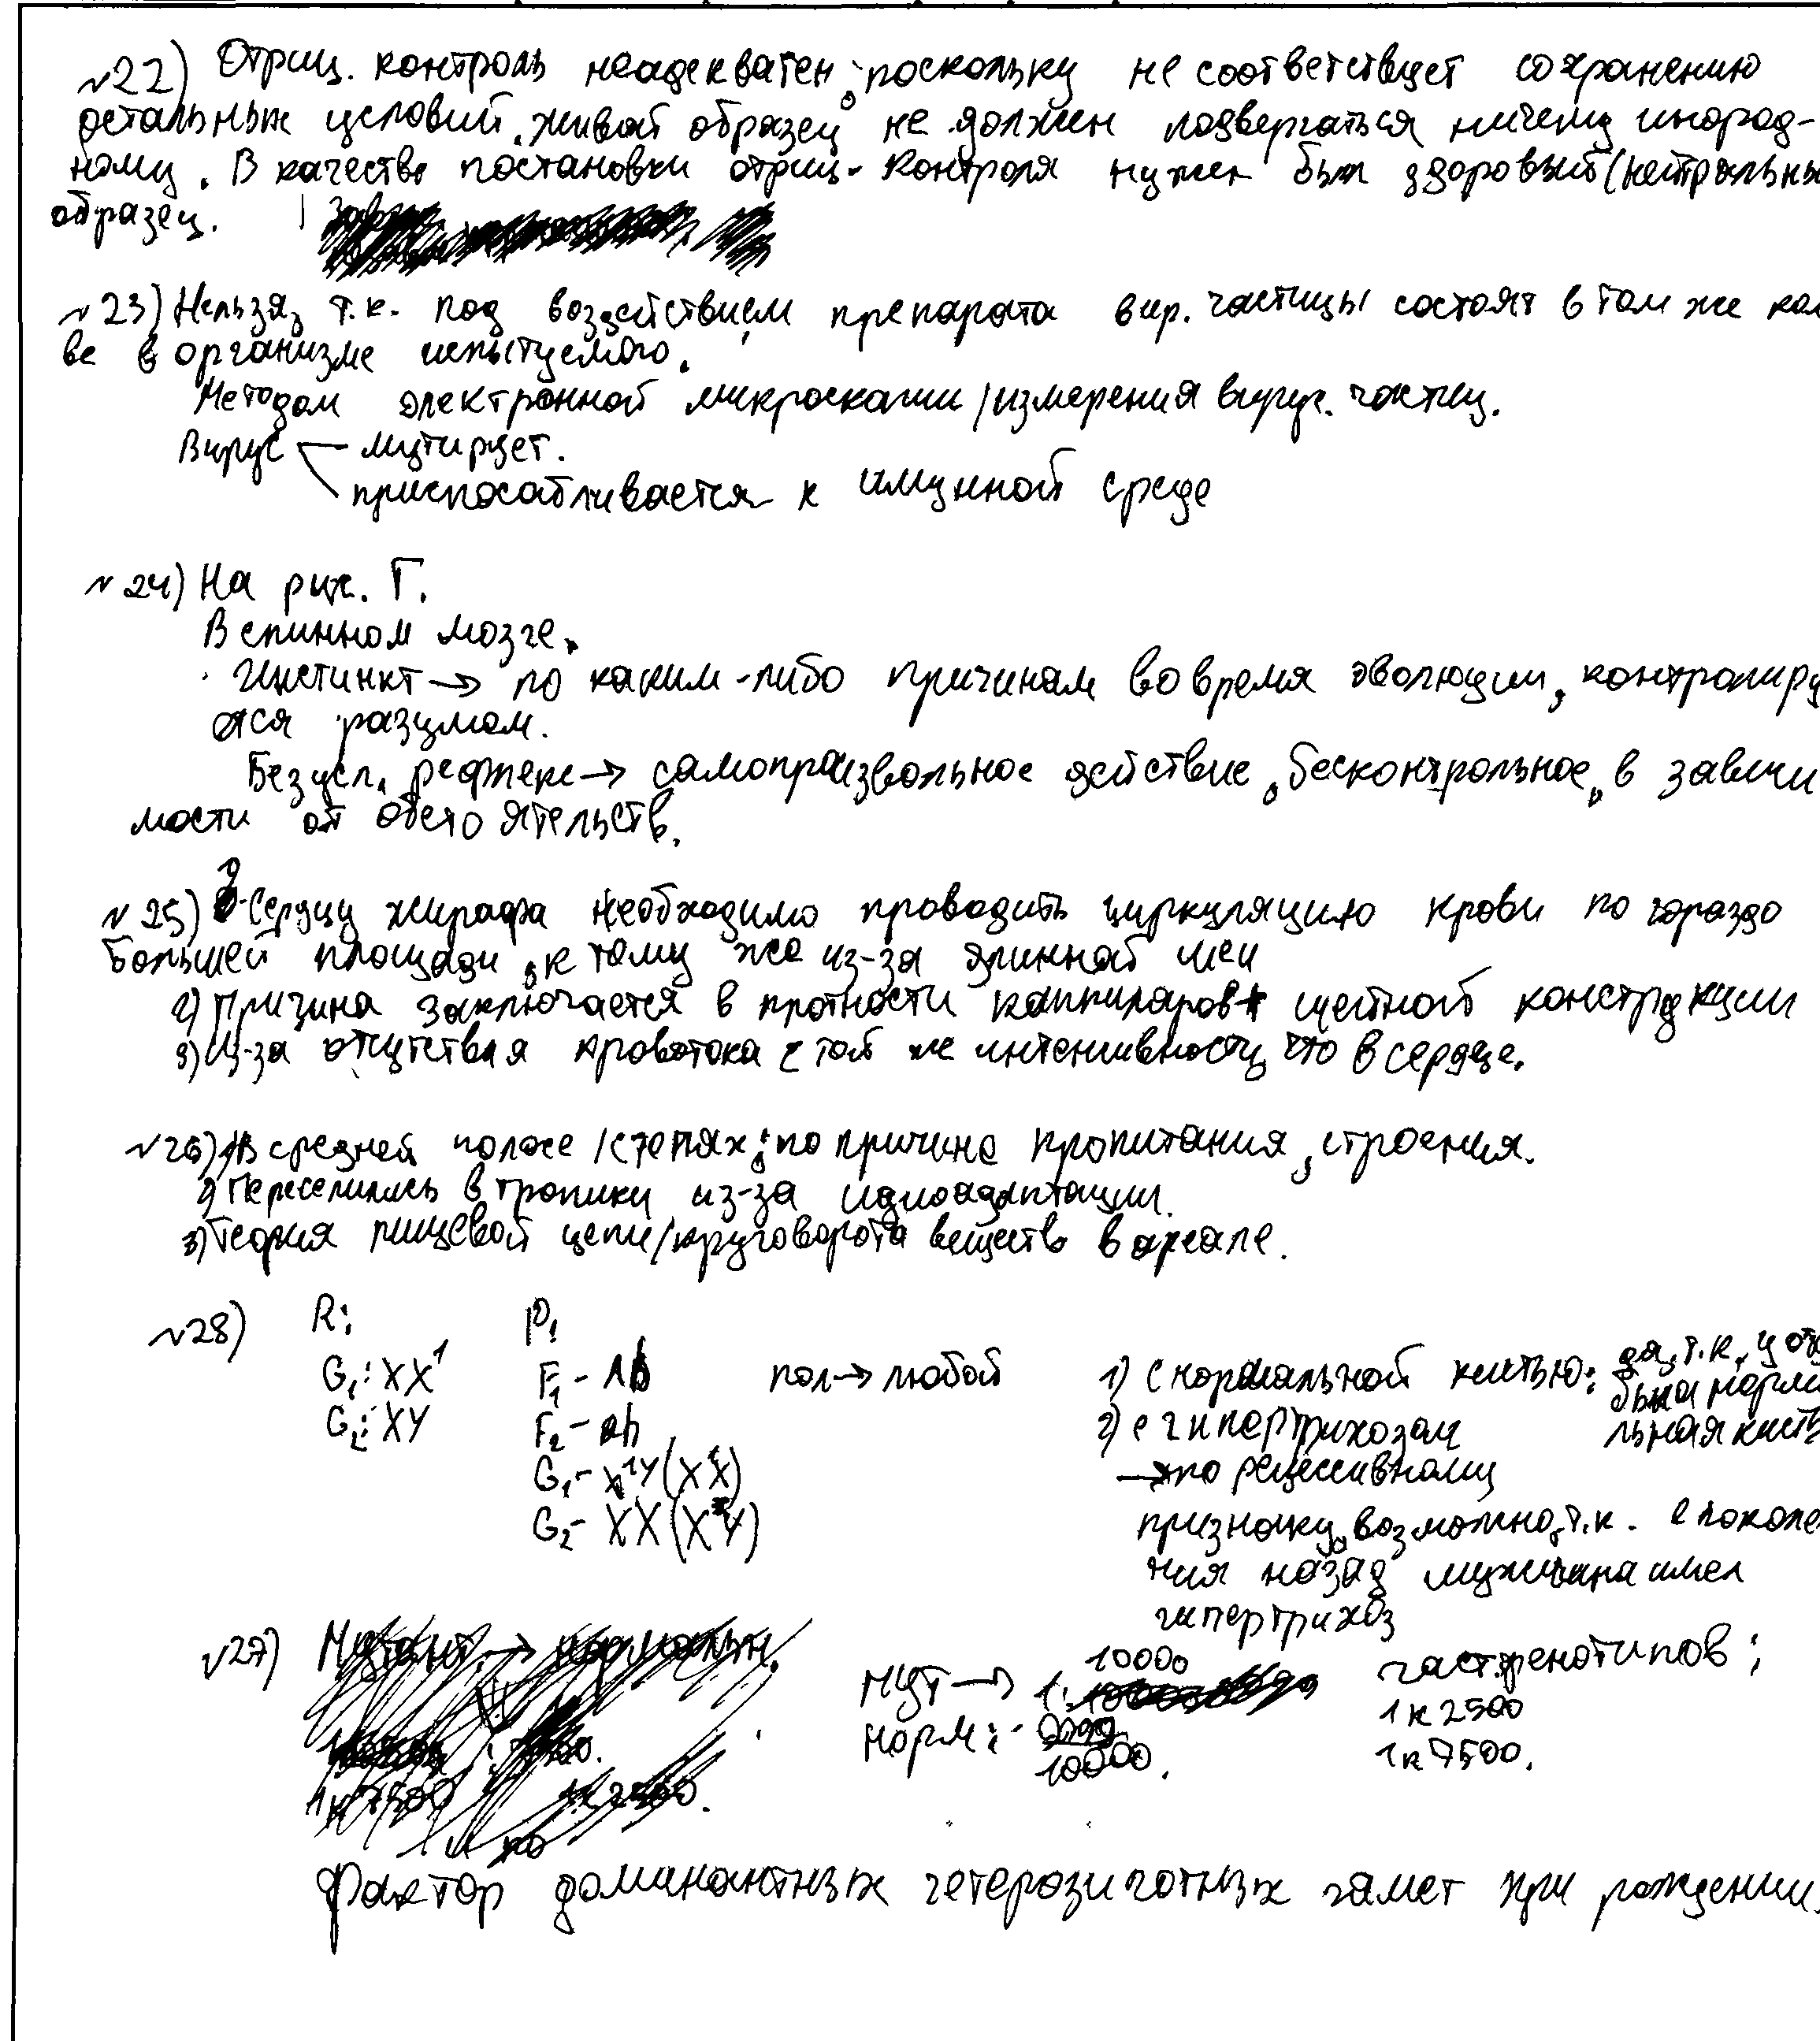 №22) Отриц. контроль неадекватен, поскольку не соответствует сохранению
остальных условий. живой образец не должен подвергаться ничему инород-
ному. В качестве постановки отриц. контроля нужен был здоровый (нейтральны
образец.
№23) Нельзя, т.к. под воздействием препарата вир. частицы состоят в том же кол
ве в организме испытуемого.
Методом электронной микроскапии/измерения вирус. частиц.
Вирус — мутирует.
приспосабливается к имунной среде
№24) На рис. Г.
В спинном мозге.
Инстинкт → по каким-либо причинам во время эволюции, контролиру
ются разумом.
Безусл. рефлекс → самопроизвольное действие, бесконтрольное, в зависи
мости от обстоятельств.
№25) Сердцу жирафа необходимо проводить циркуляцию крови по гораздо
большей площади, к тому же из-за длинной шеи
2) Причина заключается в плотности каппиляров щейной конструкции
3) Из-за отсутствия кровотока с той же интенсивностью, что в сердце.
№26) В средней полосе/степях; по причине пропитания, строения.
2) Переселились в тропики из-за идиоадаптации.
3) Теория пищевой цепи/круговорота веществ в ареале.
№28) R: P1
G1: XX¹ F1 - Ab пол → любой 1) С нормальной кистью: да, т.к. у отц
G2: XY F2 - ab 2) с гипертрихозом была норма
льная кисть
G1 - X¹Y (XX) → по рецессивному
G2 - XX (XY) признаку, возможно, т.к. споколе
ния назад мужчина имел
гипертрихоз
№27) Мут → 1: 10000 част. фенотипов:
норм: - 9999 1 к 2500
10000. 1 к 7500.
Фактор доминантных гетерозиготных гамет при рождении.